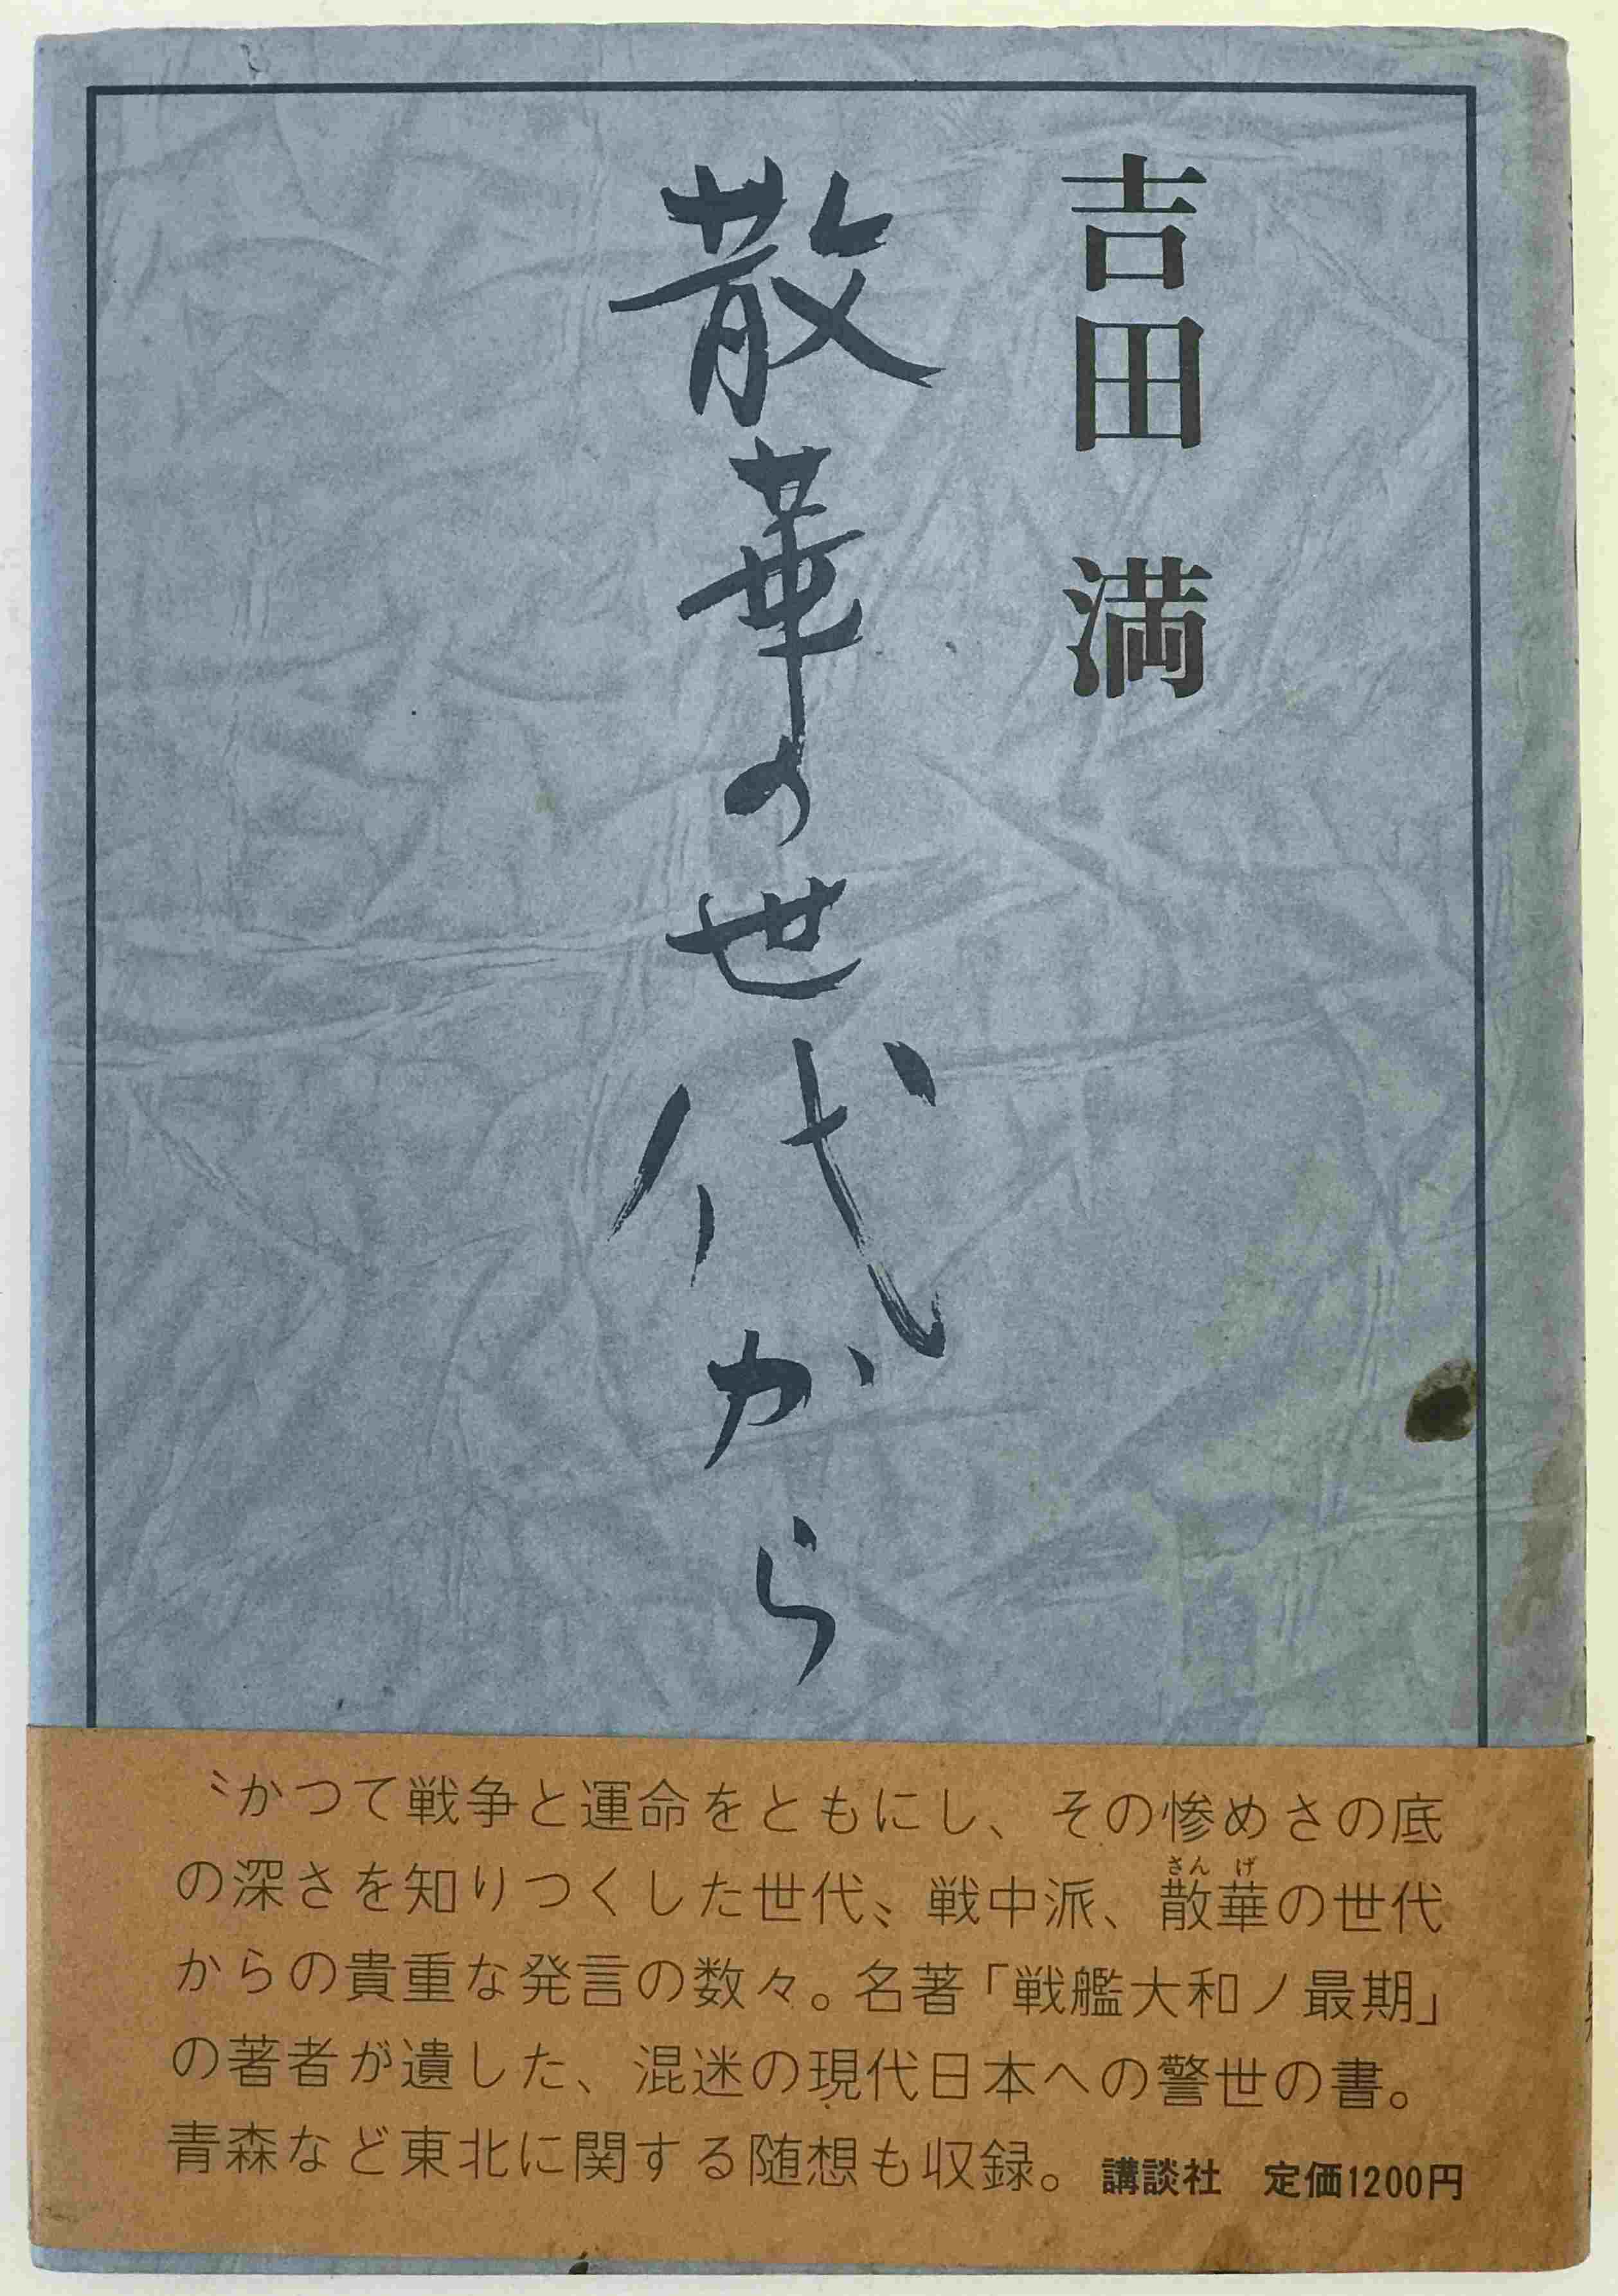 吉田 満
散華の世代から
〝かつて戦争と運命をともにし、その惨めさの底
の深さを知りつくした世代〟戦中派、散華の世代
さん げ
からの貴重な発言の数々。名著「戦艦大和ノ最期」
の著者が遺した、混迷の現代日本への警世の書。
青森など東北に関する随想も収録。 講談社 定価1200円